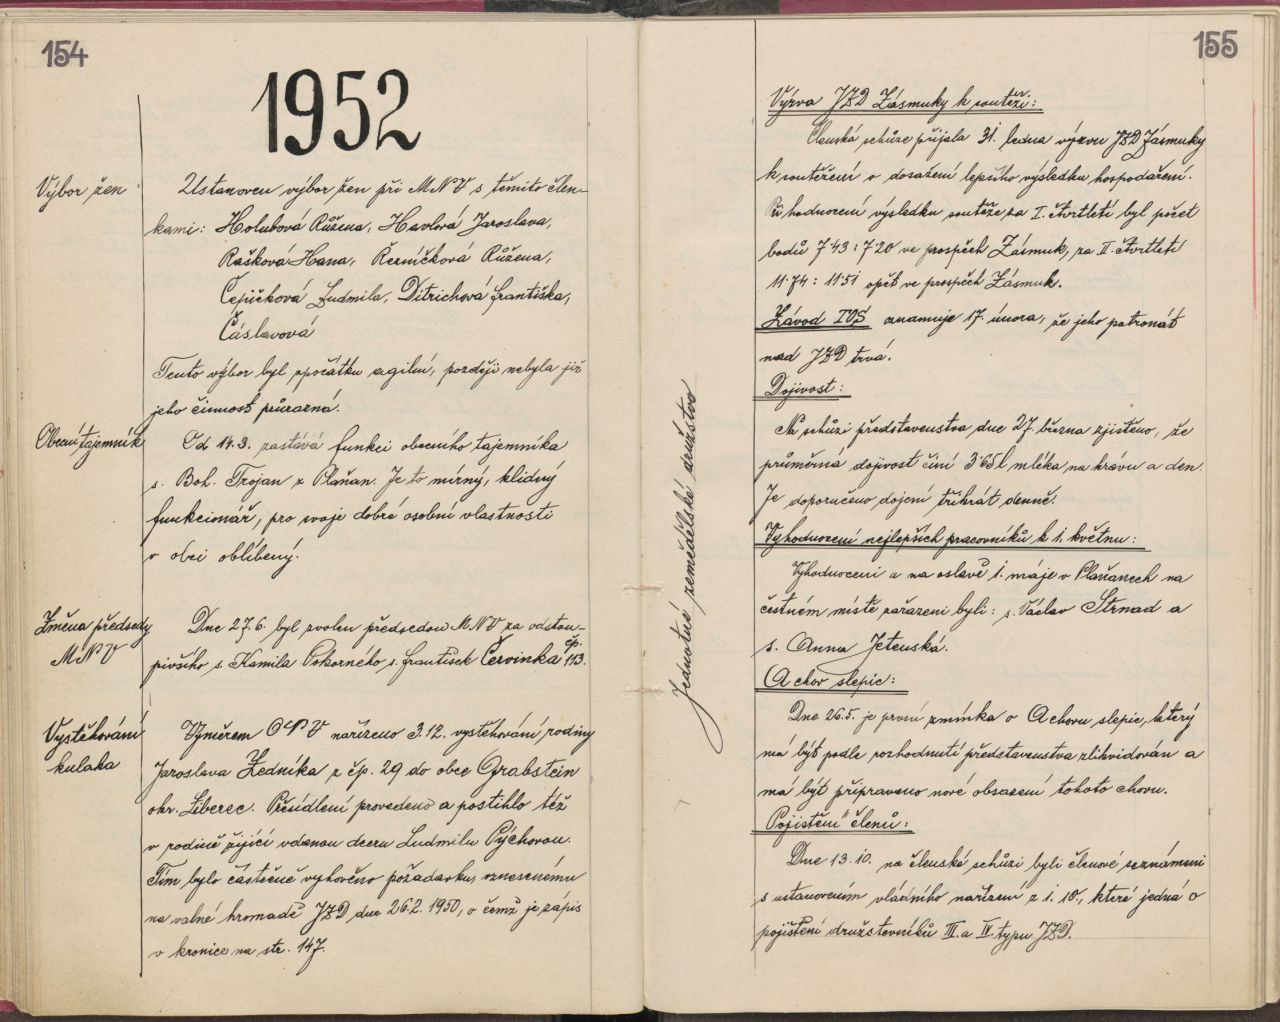 154
1952
Výbor žen
Ustanoven výbor žen při MNV s těmito člen-
kami: Holubová Růžena, Havlová Jaroslava,
Rašková Hana, Řezníčková Růžena,
Čejičková Ludmila, Ditrichová františka,
Čáslavová
Tento výbor byl zpočátku agilní, později nebyla již
jeho činnost průrazná.
Obecní tajemník
Od 14.3. zastává funkci obecního tajemníka
s. Boh. Trojan z Plaňan. Je to mírný, klidný
funkcionář, pro svoje dobré osobní vlastnosti
v obci oblíbený.
Změna předsedy
MNV
Dne 27.6. byl zvolen předsedou MNV za odstou-
pivšího s. Kamila Pokorného s. františek Červinka čp. 113.
Vystěhování
kulaka
Výměrem ONV nařízeno 3.12. vystěhování rodiny
Jaroslava Zedníka z čp. 29 do obce Grabštein
okr. Liberec. Přesídlení provedeno a postihlo též
v rodině žijící vdanou dceru Ludmilu Pýchovou.
Tím bylo částečně vyhověno požadavku, vznesenému
na valné hromadě JZD dne 26.2. 1950, o čemž je zápis
v kronice na str. 147.
Jednotné zemědělské družstvo
155
Výzva JZD Zásmuky k soutěži:
Členská schůze přijala 31. ledna výzvu JZD Zásmuky
k soutěžení o dosažení lepšího výsledku hospodaření.
Při hodnocení výsledku soutěže za I. čtvrtletí byl počet
bodů 7'43 : 7'20 ve prospěch Zásmuk, za II. čtvrtletí
11'74 : 11'51 opět ve prospěch Zásmuk.
Závod TOS oznamuje 17. února, že jeho patronát
nad JZD trvá.
Dojivost:
Na schůzi představenstva dne 27. března zjištěno, že
průměrná dojivost činí 3'65 l mléka na krávu a den.
Je doporučeno dojení třikrát denně.
Vyhodnocení nejlepších pracovníků k 1. květnu:
Vyhodnoceni a na oslavě 1. máje v Plaňanech na
čestném místě zařazeni byli: s. Václav Strnad a
s. Anna Jetenská.
Achov slepic:
Dne 26.5. je první zmínka o Achovu slepic, který
má být podle rozhodnutí představenstva zlikvidován a
má být připraveno nové obsazení tohoto chovu.
Pojistění členů:
Dne 13.10. na členské schůzi byli členové seznámeni
s ustanovením vládního nařízení z 1.10., které jedná o
pojištění družstevníků III. a IV. typu JZD.